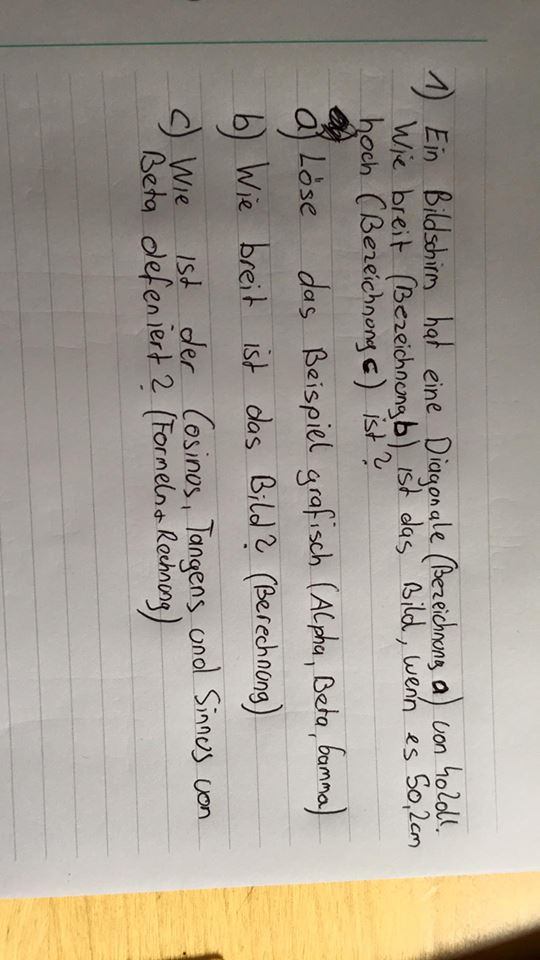 1) Ein Bildschirm hat eine Diagonale (Bezeichnung a) von 40Zoll.
Wie breit (Bezeichnung b) ist das Bild, wenn es 50,2cm
hoch (Bezeichnung c) ist?
a) Löse das Beispiel grafisch (Alpha, Beta, Gamma)
b) Wie breit ist das Bild? (Berechnung)
c) Wie ist der Cosinus, Tangens und Sinnus von
Beta defeniert? (Formeln + Rechnung)